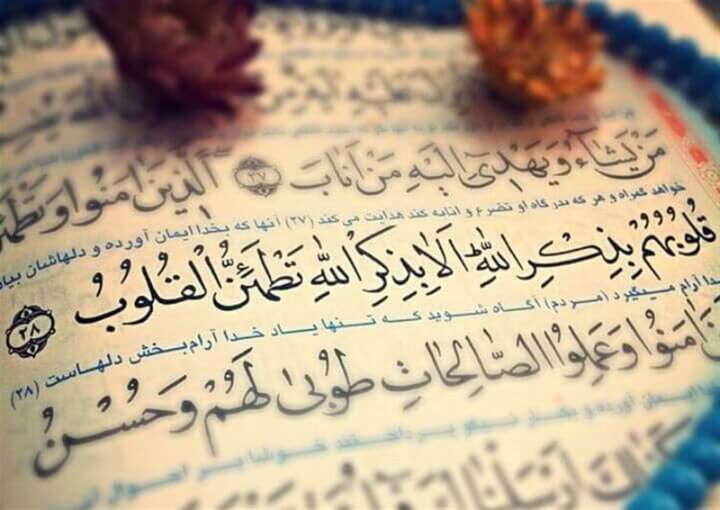 مَن يَشَاءُ وَيَهْدِي إِلَيْهِ مَنْ أَنَابَ ﴿٢٧﴾ الَّذِينَ آمَنُوا وَتَطْمَئِنُّ
خواهد گمراه و هر که بدرگاه او تضرع و انابه کند هدایت می کند (۲۷) آنها که بخدا ایمان آورده و دلهاشان بیاد
قُلُوبُهُم بِذِكْرِ اللَّهِ أَلَا بِذِكْرِ اللَّهِ تَطْمَئِنُّ الْقُلُوبُ ﴿٢٨﴾
خدا آرام میگیرد (مردم) آگاه شوید که تنها یاد خدا آرام‌بخش دلهاست (۲۸)
آمَنُوا وَعَمِلُوا الصَّالِحَاتِ طُوبَىٰ لَهُمْ وَحُسْنُ
ایمان آورده و بکار نیکو پرداختند خوشا بر احوال